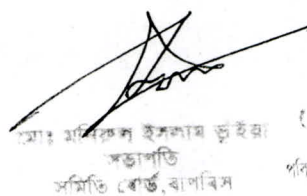 মোঃ মনিরুল ইসলাম ভূঁইয়া
সভাপতি
সমিতি বোর্ড, বাপবিস